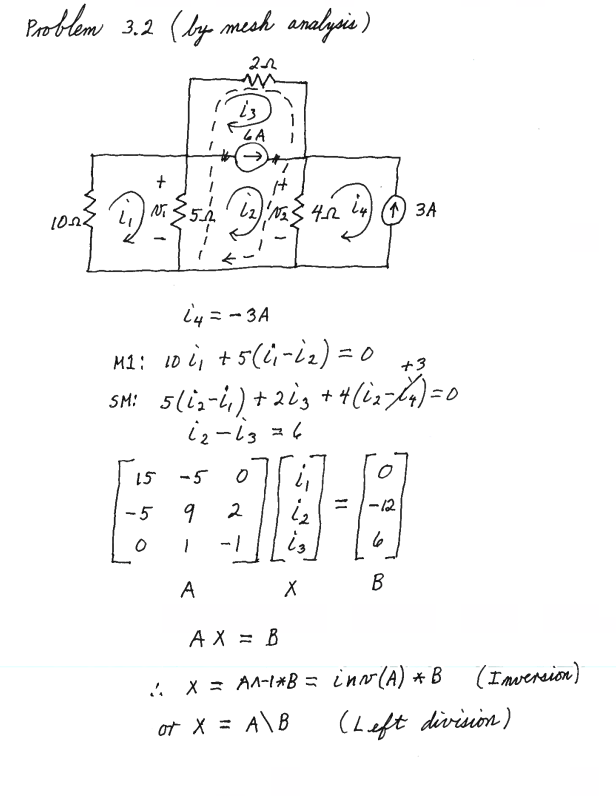 Problem 3.2 (by mesh analysis)
2Ω
i3
6A
+ +
10Ω i1 v1 5Ω i2 v2 4Ω i4 3A
- -
i4 = -3A
M1: 10 i1 + 5(i1-i2) = 0
+3
SM: 5(i2-i1) + 2i3 + 4(i2-i4) = 0
i2 - i3 = 6
[15 -5 0] [i1] = [0]
[-5 9 2] [i2] = [-12]
[0 1 -1] [i3] = [6]
A X B
A X = B
∴ X = A^-1*B = inv(A) * B (Inversion)
or X = A\B (Left division)